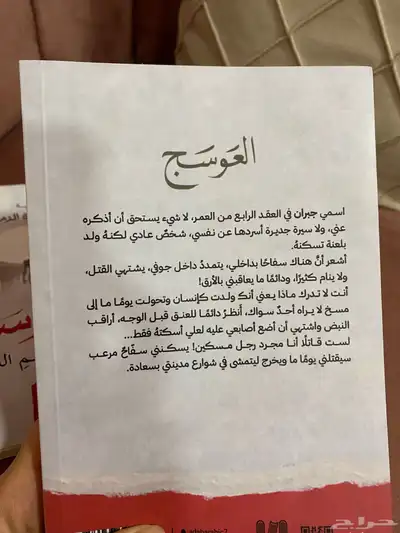 العَوسَج
اسمي جيران في العقد الرابع من العمر، لا شيء يستحق أن أذكره
عني، ولا سيرة جديرة أسردها عن نفسي، شخصٌ عادي لكنهُ ولد
بلعنة تسكنهُ.
أشعر أنَّ هناك سفاحًا بداخلي، يتمددُ داخل جوفي، يشتهي القتل،
ولا ينام كثيرًا، ودائمًا ما يعاقبني بالأرق!
أنت لا تدرك ماذا يعني أنكَ ولدت كإنسان وتحولت يومًا ما إلى
مسخ لا يراه أحدٌ سواك، أنظرُ دائمًا للعنق قبل الوجه، أراقب
النبض واشتهي أن أضع أصابعي عليه لعلي أسكتهُ فقط...
لست قاتلًا أنا مجرد رجل مسكين! يسكنني سفّاحٌ مرعب
سيقتلني يومًا ما ويخرج ليتمشى في شوارع مدينتي بسعادة.
حراج